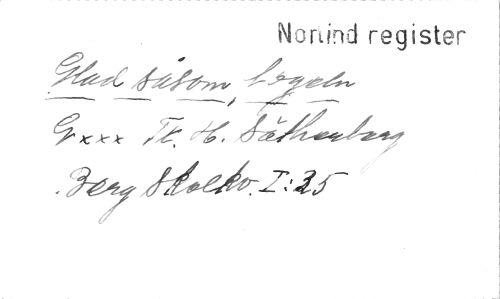 Norlind register
Glad såsom fogeln
G xxx Tk. H. Sätherberg
Berg Skolkv. I:35